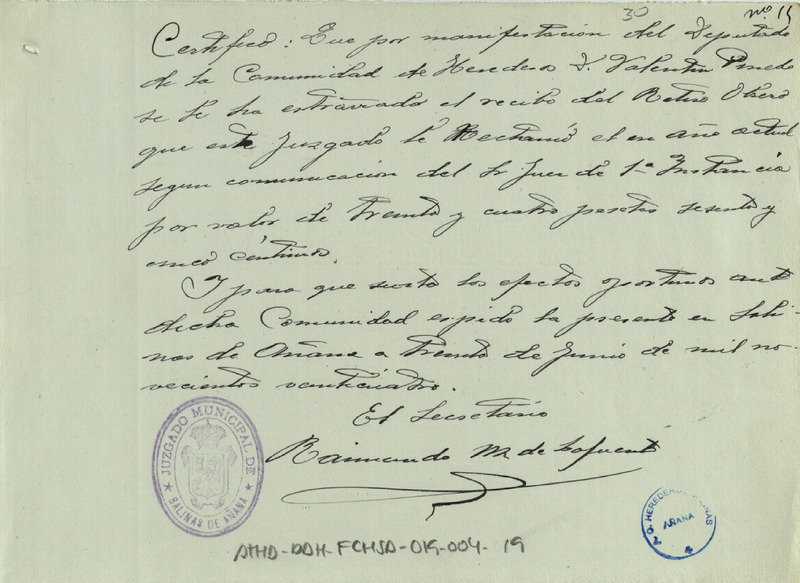 30
nº 15
Certifico: Que por manifestación del Deputado
de la Comunidad de Heredero D. Valentin Pinedo
se le ha estraviado el recibo del Retiro Obrero
que este Juzgado le Reclamó el en año actual
segun comunicación del Sr Juez de 1ª Instancia
por valor de treinta y cuatro pesetas sesenta y
cinco céntimos.
Y para que surta los efectos oportunos ante
dicha Comunidad espido la presente en Sali-
nas de Añana a treinta de Junio de mil no-
vecientos veinticuatro.
El Secretario
Raimundo M. de Lafuente
JUZGADO MUNICIPAL DE
SALINAS DE AÑANA
AÑANA
ATHA-DAH-FCHSA-019-004-19